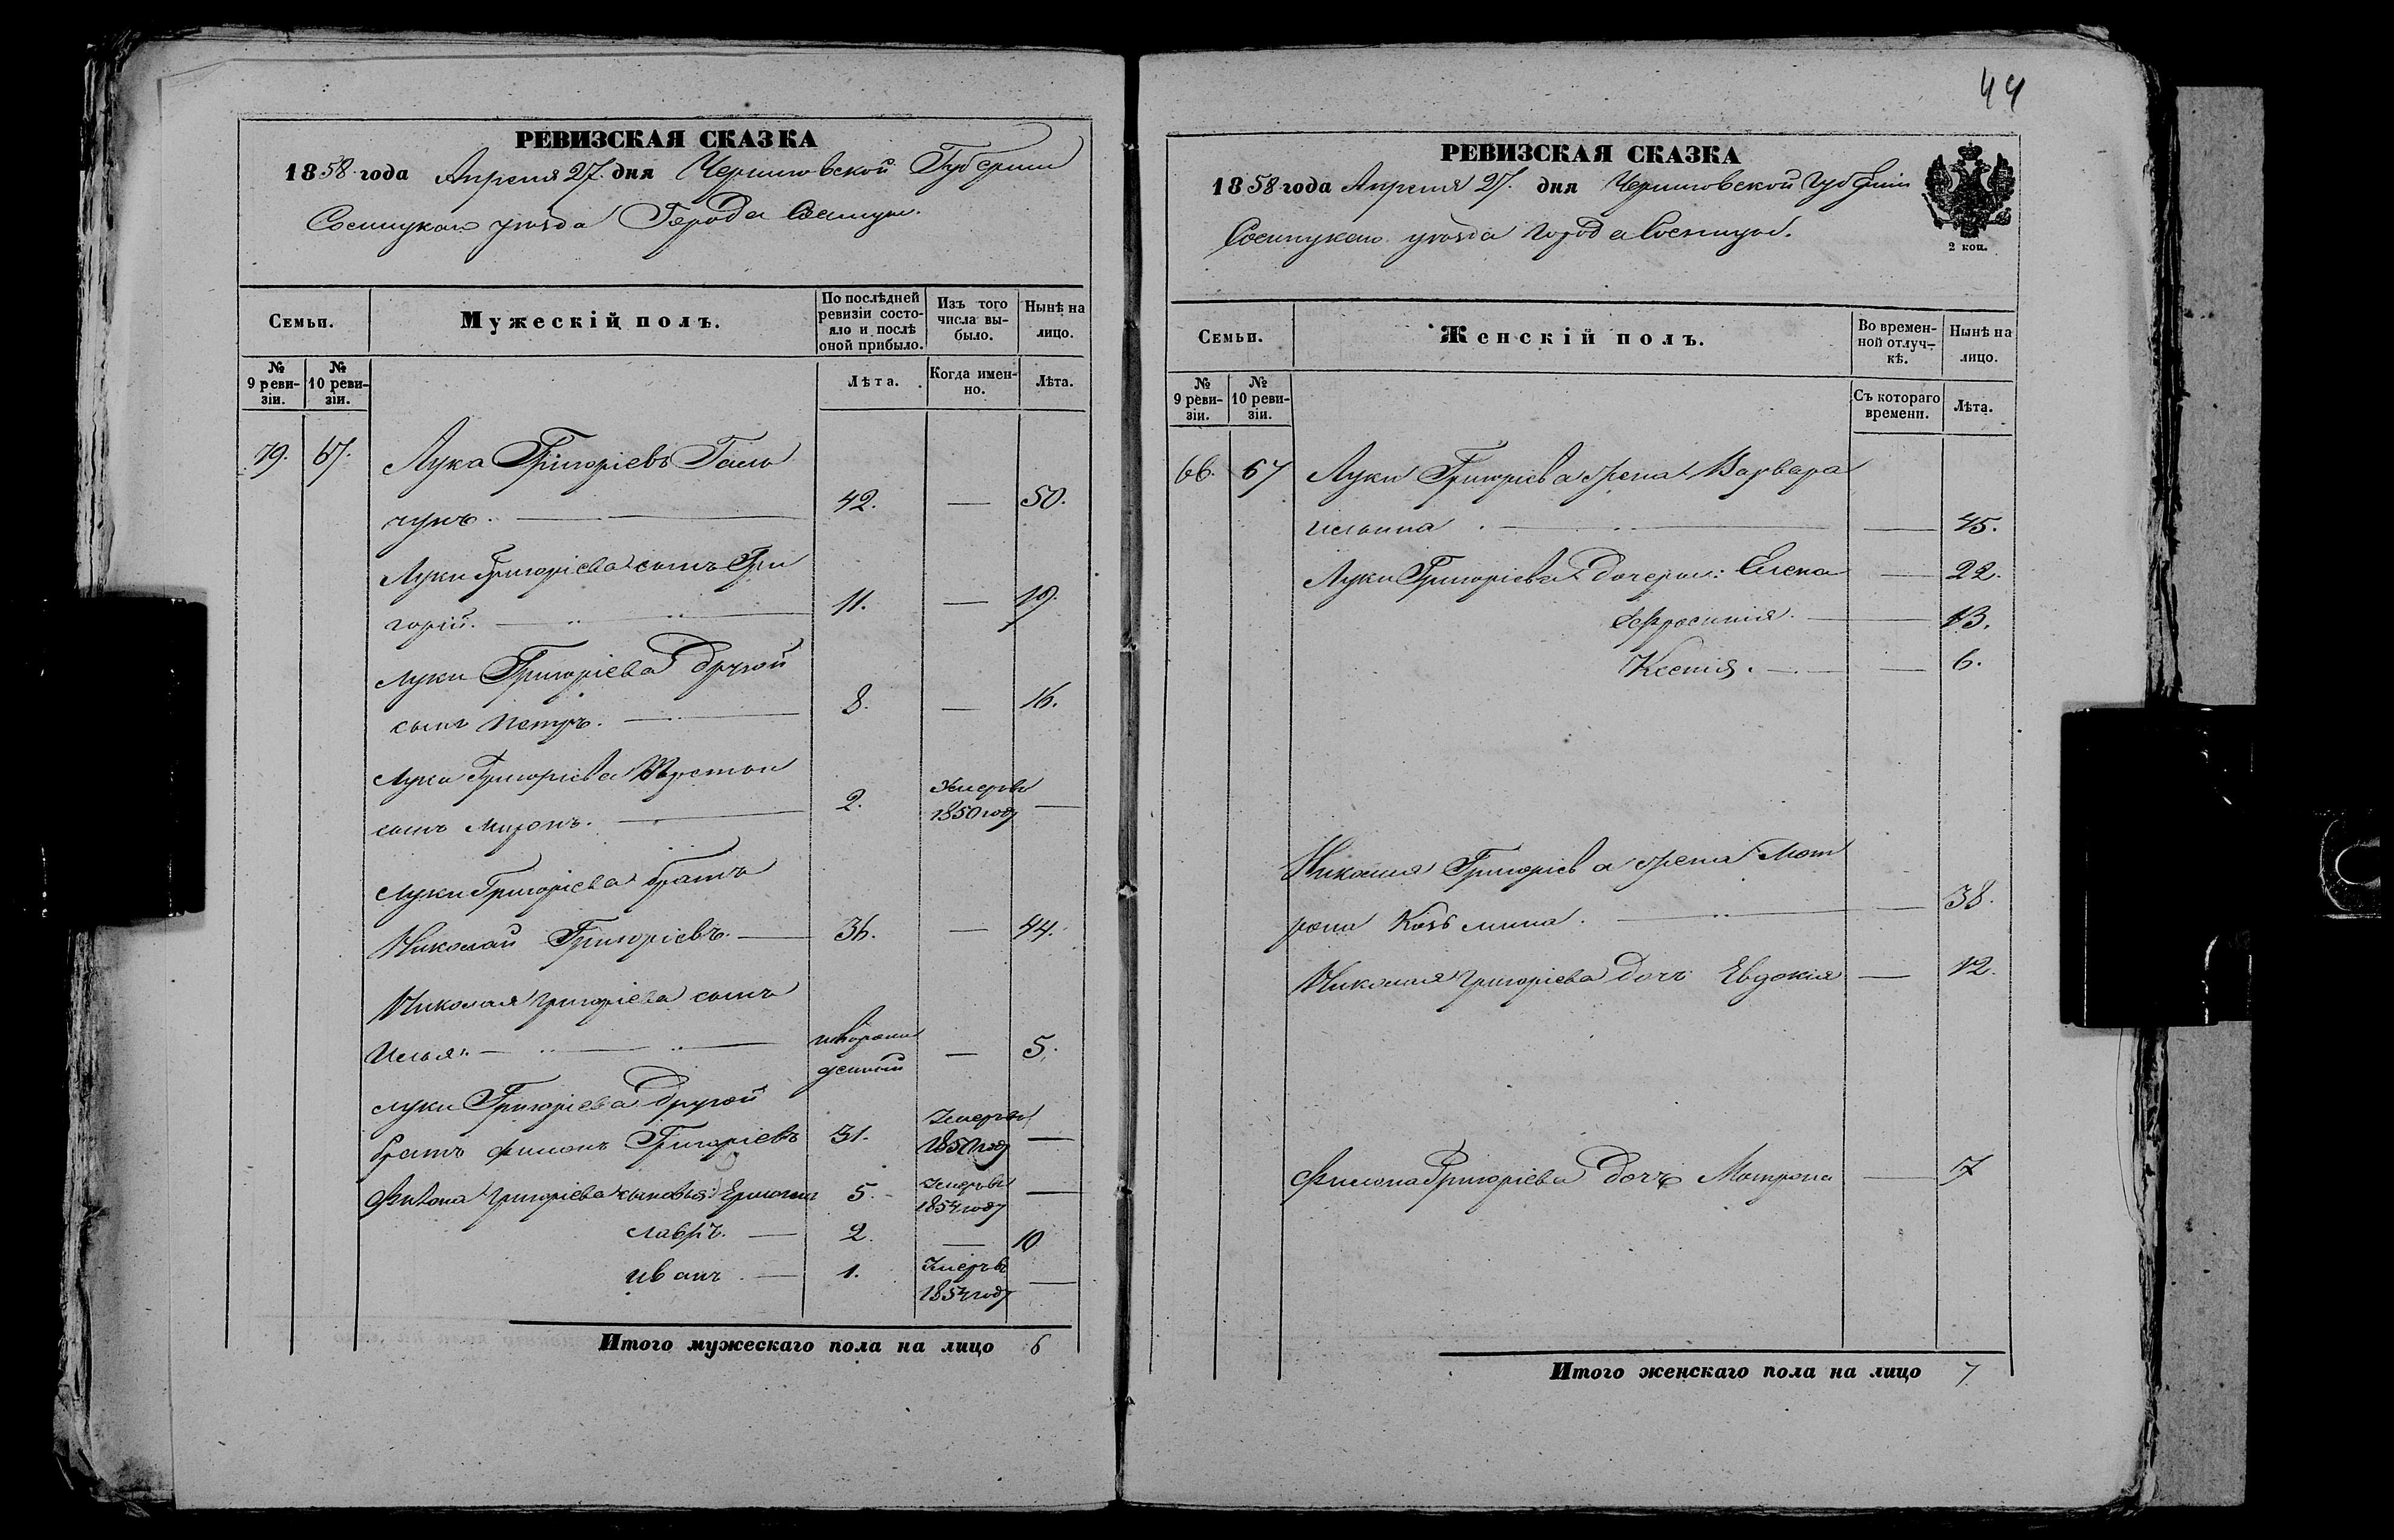 44
РЕВИЗСКАЯ СКАЗКА
1858 года Апреля 27. дня Черниговской Губернии
Сосницкаго уезда Города Сосницы.
Семьи.
Мужескій полъ.
По послѣдней ревизіи состояло и послѣ оной прибыло.
Изъ того числа выбыло.
Нынѣ на лицо.
№ 9 ревизіи.
№ 10 ревизіи.
Лѣта.
Когда именно.
Лѣта.
79. 67. Лука Григоріевъ Галь
чунъ. 42. — 50.
Луки Григоріева сынъ Гри
горій. 11. — 19.
Луки Григоріева другой
сынъ Петръ. 8. — 16.
Луки Григоріева третій
сынъ Миронъ. 2. Умеръ въ 1850 году —
Луки Григоріева братъ
Николай Григоріевъ. — 36. — 44.
Николая Григоріева сынъ
Илья. новорожденный — 5.
Луки Григоріева другой
братъ Филонъ Григоріевъ 31. Умеръ въ 1850 году —
Филона Григоріева сыновья: Ермолай 5. Умеръ въ 1854 году —
Лавръ. — 2. — 10
Иванъ. — 1. Умеръ въ 1854 году —
Итого мужескаго пола на лицо 6
РЕВИЗСКАЯ СКАЗКА
1858 года Апреля 27. дня Черниговской Губерніи
Сосницкаго уезда Города Сосницы.
2 коп.
Семьи.
Женскій полъ.
Во временной отлучкѣ.
Нынѣ на лицо.
№ 9 ревизіи.
№ 10 ревизіи.
Съ котораго времени.
Лѣта.
66. 67 Луки Григоріева жена Варвара
Ильина. — 45.
Луки Григоріева дочери: Елена — 22.
Ефросинія. — 13.
Ксенія. — 6.
Николая Григоріева жена Мот
рона Козьмина. — 38.
Николая Григоріева дочь Евдокія — 12.
Филона Григоріева дочь Мотрона — 17
Итого женскаго пола на лицо 7